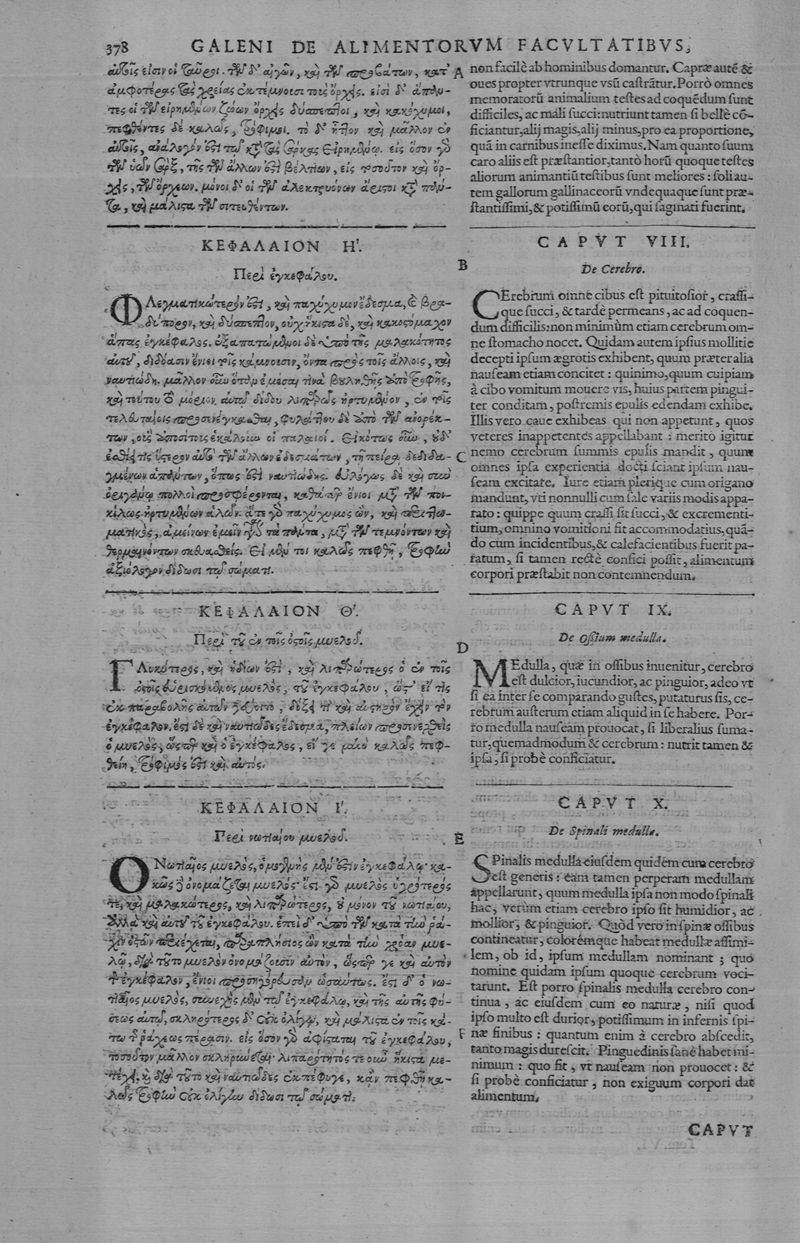 378 GALENI DE ALIMENTORVM FACVLTATIBVS.
αὐτοῖς εἰσιν οἱ ταῦροι. τῶν δ' αἰγῶν, καὶ τῶν προβάτων, κατ'
ἀμφοτέρας τὰς χρείας ἐκτέμνουσι τοὺς ὄρχεις. εἰσὶ δ' ἁπάν-
των οἱ τῶν εἰρημένων ζώων ὄρχεις δύσπεπτοι, καὶ κακόχυμοι,
πεφθέντες δὲ καλῶς, τρόφιμοι. τὸ δ' ἧττον καὶ μᾶλλον ἐν
αὐτοῖς, ἀνάλογόν ἐστι τῷ κατὰ τὰς σάρκας εἰρημένῳ. εἰς ὅσον γὰρ
τῶν ὑῶν σὰρξ, τῆς τῶν ἄλλων ἐστὶ βελτίων, εἰς τοσοῦτον καὶ ὄρ-
χεις, τῶν ὄρχεων. μόνοι δ' οἱ τῶν ἀλεκτρυόνων ἄριστοι κατὰ πάν-
τα, καὶ μάλιστα τῶν σιτευθέντων.
ΚΕΦΑΛΑΙΟΝ Η'.
Περὶ ἐγκεφάλου.
ΦΛεγματικώτερόν ἐστι, καὶ παχύχυμον ἔδεσμα, καὶ βρα-
δύπορον, καὶ δύσπεπτον, οὐχ ἥκιστα δὲ, καὶ κακοστόμαχον
ἅπας ἐγκέφαλος. ἐξαπατώμενοι δὲ ὑπὸ τῆς μαλακότητος
αὐτοῦ, διδόασιν ἔνιοι τοῖς κάμνουσιν, ὄντα πρὸς τοῖς ἄλλοις, καὶ
ναυτιώδη. μᾶλλον οὖν ὅταν ἐμέσαι τινὰ βουληθῇς ἀπὸ τροφῆς,
καὶ τούτου τὸ μόριον αὐτῷ δίδου λιπαρῶς ἠρτυμένον, ἐν τοῖς
τελευταίοις προσενέγκασθαι, φυλάττου δὲ ἀπὸ τῶν ἀνορέκ-
των, οὓς ἀποσίτους ἐκάλουν οἱ παλαιοί. εἰκότως οὖν, οὐδ'
ἐσθίει τις ὕστερον αὐτὸ τῶν ἄλλων ἐδεσμάτων, τῇ πείρᾳ δεδιδα-
γμένων ἁπάντων, ὅπως ἐστὶ ναυτιώδης. εὐλόγως δὲ καὶ σὺν
ὀριγάνῳ πολλοὶ προσφέρονται, καθάπερ ἔνιοι μετὰ τῶν ποι-
κίλως ἠρτυμένων ἁλῶν. ἅτε γὰρ παχύχυμος ὢν, καὶ περιττω-
ματικὸς, ἀμείνων ἐμεῖν γίνεται τὰ πάντα, μετὰ τῶν τεμνόντων καὶ
θερμαινόντων σκευασθείς. Εἰ μέν τοι καλῶς πεφθῇ, τροφὴν
ἀξιόλογον δίδωσι τῷ σώματι.
ΚΕΦΑΛΑΙΟΝ Θ'.
Περὶ τοῦ ἐν τοῖς ὀστοῖς μυελοῦ.
ΓΛυκύτερος, καὶ ἡδίων ἐστὶ, καὶ λιπαρώτερος ὁ ἐν τοῖς
ὀστοῖς εὑρισκόμενος μυελὸς, τοῦ ἐγκεφάλου, ὥστ' εἴ τις
ἐκ παραβολῆς αὐτῶν γεύοιτο, δόξει τι καὶ αὐστηρὸν ἔχειν τὸν
ἐγκέφαλον. ἔστι δὲ καὶ ναυτιῶδες ἔδεσμα, πλείων προσενεχθεὶς
ὁ μυελὸς, ὥσπερ καὶ ὁ ἐγκέφαλος, εἴ γε μὴν καλῶς πεφ-
θείη, τρόφιμός ἐστι καὶ αὐτός.
ΚΕΦΑΛΑΙΟΝ Ι'.
Περὶ νωτιαίου μυελοῦ.
Ὁ Νωτιαῖος μυελὸς, ὁμογενὴς μέν ἐστιν ἐγκεφάλῳ· κα-
κῶς δὲ ὀνομάζεται μυελός· ἔστι γὰρ μυελὸς ὑγρότερός
τε, καὶ μαλακώτερος, καὶ λιπαρώτερος, οὐ μόνον τοῦ νωτιαίου,
ἀλλὰ καὶ αὐτοῦ τοῦ ἐγκεφάλου. ἐπεὶ δ' ὑπὸ τῶν κατὰ τὴν ῥά-
χιν ὀστῶν περιέχεται, παραπλήσιος ὢν κατὰ τὴν χρόαν μυε-
λῷ, διὰ τοῦτο μυελὸν ὀνομάζουσιν αὐτὸν, ὥσπερ γε καὶ αὐτὸν
τὸν ἐγκέφαλον, ἔνιοι προσηγόρευσαν ὡσαύτως. ἔστι δ' ὁ νω-
τιαῖος μυελὸς, συνεχὴς μὲν τῷ ἐγκεφάλῳ, καὶ τῆς αὐτῆς φύ-
σεως αὐτῷ, σκληρότερος δ' οὐκ ὀλίγῳ, καὶ μάλιστα ἐν τοῖς κά-
τω τῆς ῥάχεως πέρασιν. εἰς ὅσον γὰρ ἀφίσταται τοῦ ἐγκεφάλου,
τοσοῦτον μᾶλλον σκληρύνεται· λιπαρότητος τε οὖν ἥκιστα με-
τέχει, καὶ διὰ τοῦτο καὶ ναυτιῶδες ἐκπέφυγε, κἂν πεφθῇ κα-
λῶς τροφὴν οὐκ ὀλίγην δίδωσι τῷ σώματι.
A non facilè ab hominibus domantur. Capræ autẽ &
oues propter vtrunque vsũ castrãtur. Porrò omnes
memoratorũ animalium testes ad coquẽdum sunt
difficiles, ac mali succi: nutriunt tamen si bellè cõ-
ficiantur, alij magis, alij minus, pro ea proportione,
quã in carnibus inesse diximus. Nam quanto suum
caro aliis est præstantior, tantò horũ quoque testes
aliorum animantiũ testibus sunt meliores: soli au-
tem gallorum gallinaceorũ vndequaque sunt præ-
stantissimi, & potissimũ eorũ, qui saginati fuerint.
CAPVT VIII.
B De Cerebro.
CErebrum omne cibus est pituitosior, crassi-
que succi, & tardè permeans, ac ad coquen-
dum difficilis: non minimùm etiam cerebrum om-
ne stomacho nocet. Quidam autem ipsius mollitie
decepti ipsum ægrotis exhibent, quum præter alia
nauseam etiam concitet: quinimo, quum cuipiam
à cibo vomitum mouere vis, huius partem pingui-
ter conditam, postremis epulis edendam exhibe.
Illis vero caue exhibeas qui non appetunt, quos
veteres inappetentes appellabant: meritò igitur
C nemo cerebrum summis epulis mandit, quum
omnes ipsa experientia docti sciant ipsum nau-
seam excitare. Iure etiam plerique cum origano
mandunt, vti nonnulli cum sale variis modis appa-
rato: quippe quum crassi sit succi, & excrementi-
tium, omnino vomitioni fit accommodatius, quã-
do cum incidentibus, & calefacientibus fuerit pa-
ratum, si tamen rectè confici possit, alimentum
corpori præstabit non contemnendum.
CAPVT IX.
De Ossium medulla.
D
MEdulla, quæ in ossibus inuenitur, cerebro
est dulcior, iucundior, ac pinguior, adeo vt
si ea inter se comparando gustes, putaturus sis, ce-
rebrum austerum etiam aliquid in se habere. Por-
ro medulla nauseam prouocat, si liberalius suma-
tur, quemadmodum & cerebrum: nutrit tamen &
ipsa, si probè conficiatur.
CAPVT X.
E De Spinali medulla.
SPinalis medulla eiusdem quidem cum cerebro
est generis: eam tamen perperam medullam
appellarunt, quum medulla ipsa non modo spinali
hac, verùm etiam cerebro ipso sit humidior, ac
mollior, & pinguior. Quòd vero in spinæ ossibus
contineatur, colorémque habeat medullæ assimi-
lem, ob id, ipsum medullam nominant; quo
nomine quidam ipsum quoque cerebrum voci-
tarunt. Est porro spinalis medulla cerebro con-
tinua, ac eiusdem cum eo naturæ, nisi quod
ipso multo est durior, potissimum in infernis spi-
F næ finibus: quantum enim à cerebro abscedit,
tanto magis durescit. Pinguedinis sanè habet mi-
nimum: quo fit, vt nauseam non prouocet: &
si probè conficiatur, non exiguum corpori dat
alimentum.
CAPVT